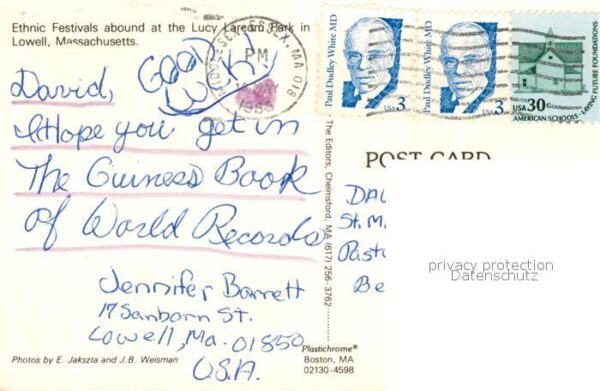 Ethnic Festivals abound at the Lucy Larcom Park in
Lowell, Massachusetts.
David,
GOOD
LUCK!
I Hope you get in
The Guiness Book
of World Records
Jennifer Barrett
17 Sanborn St.
Lowell, Ma. 01850
U.S.A.
Photos by E. Jakszta and J.B. Weisman
Plastichrome®
Boston, MA
02130-4598
The Editors, Chelmsford, MA (617) 256-3762
MIDDLESEX-ESSEX, MA 018
PM
MAY
Paul Dudley White MD
USA 3
Paul Dudley White MD
USA 3
USA 30c
AMERICAN SCHOOLS · LAYING FUTURE FOUNDATIONS
POST CARD
St. M
Past
Be
privacy protection
Datenschutz